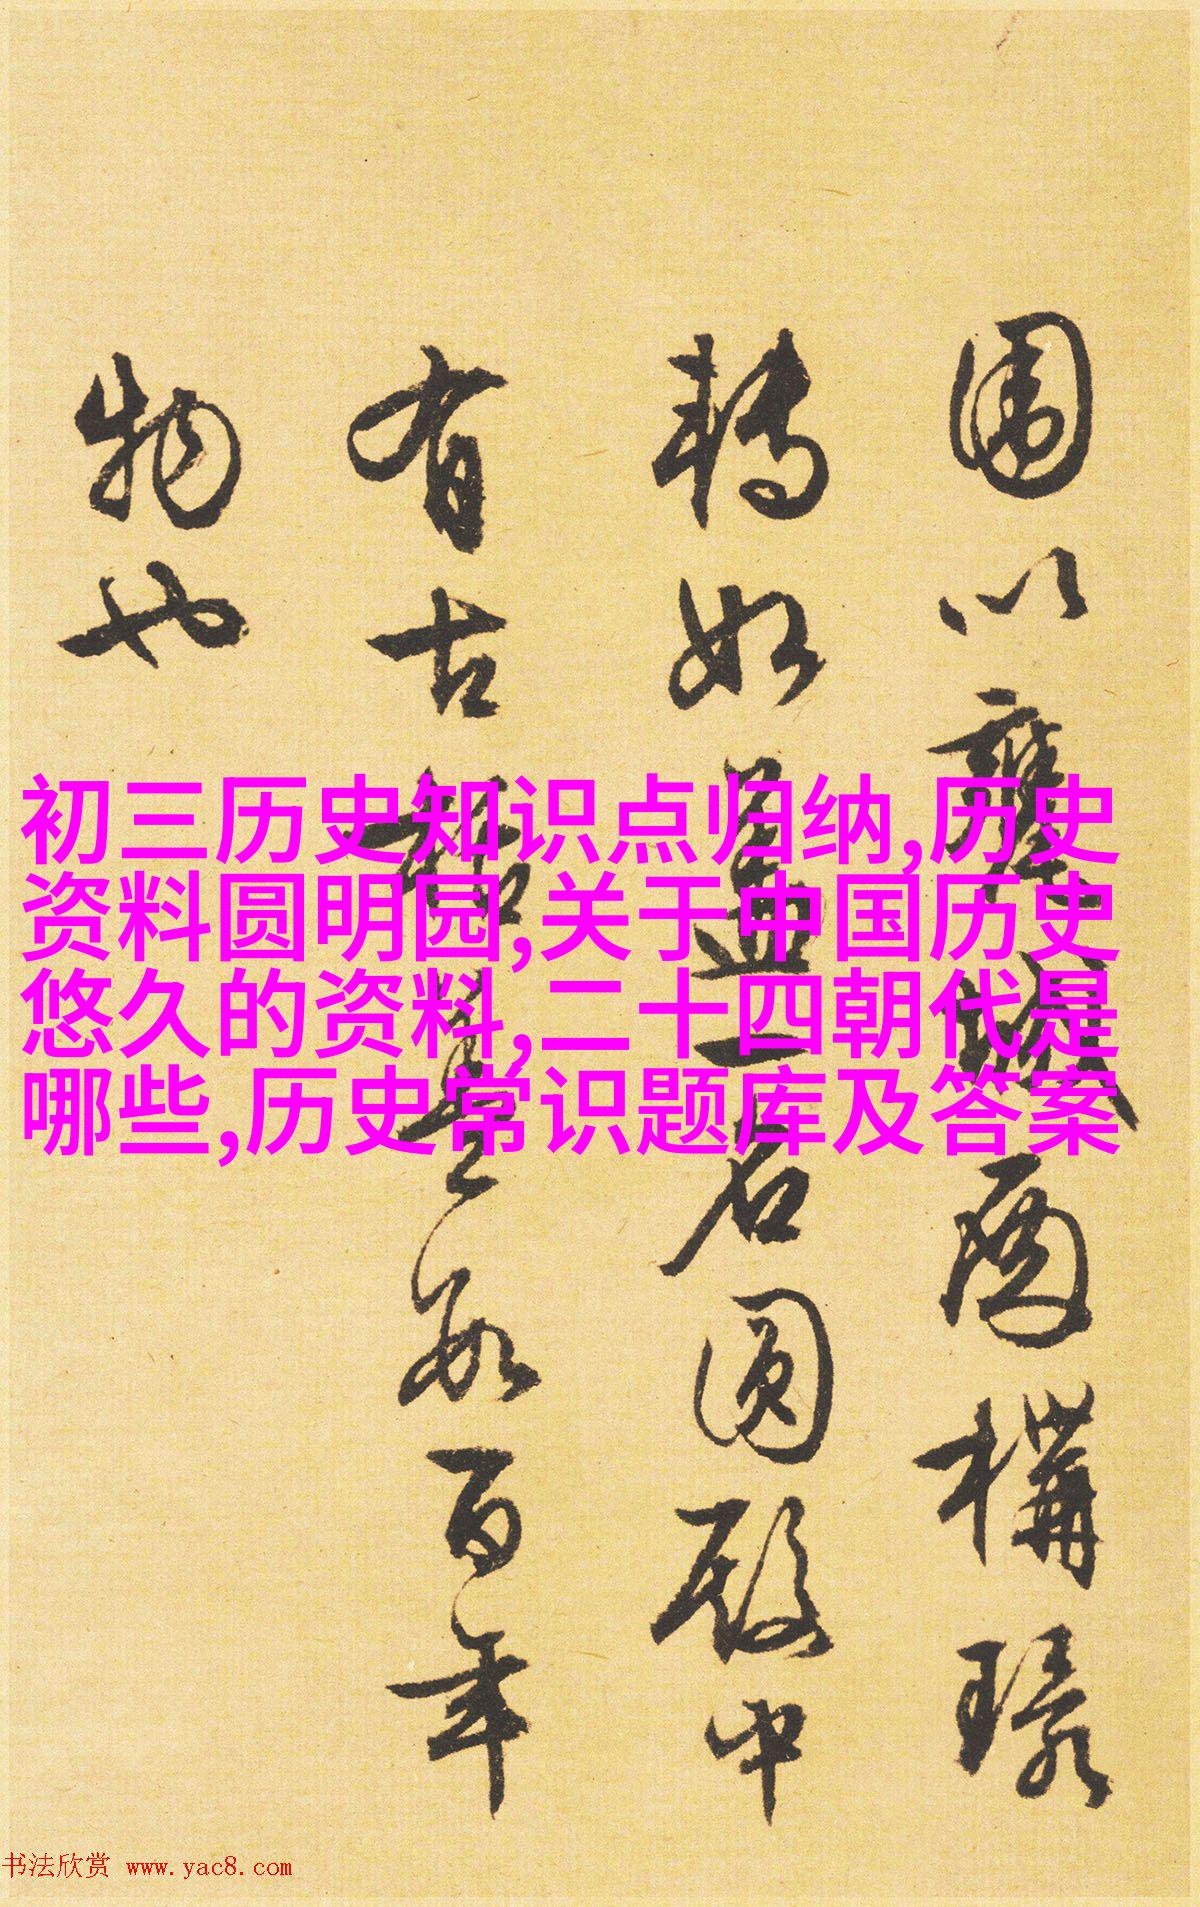 围以甃城為構環
转如盖一名圆殿中
有古栝壹百年
物也
初三历史知识点归纳,历史
资料圆明园,关于中国历史
悠久的资料,二十四朝代是
哪些,历史常识题库及答案
书法欣赏 www.yac8.com